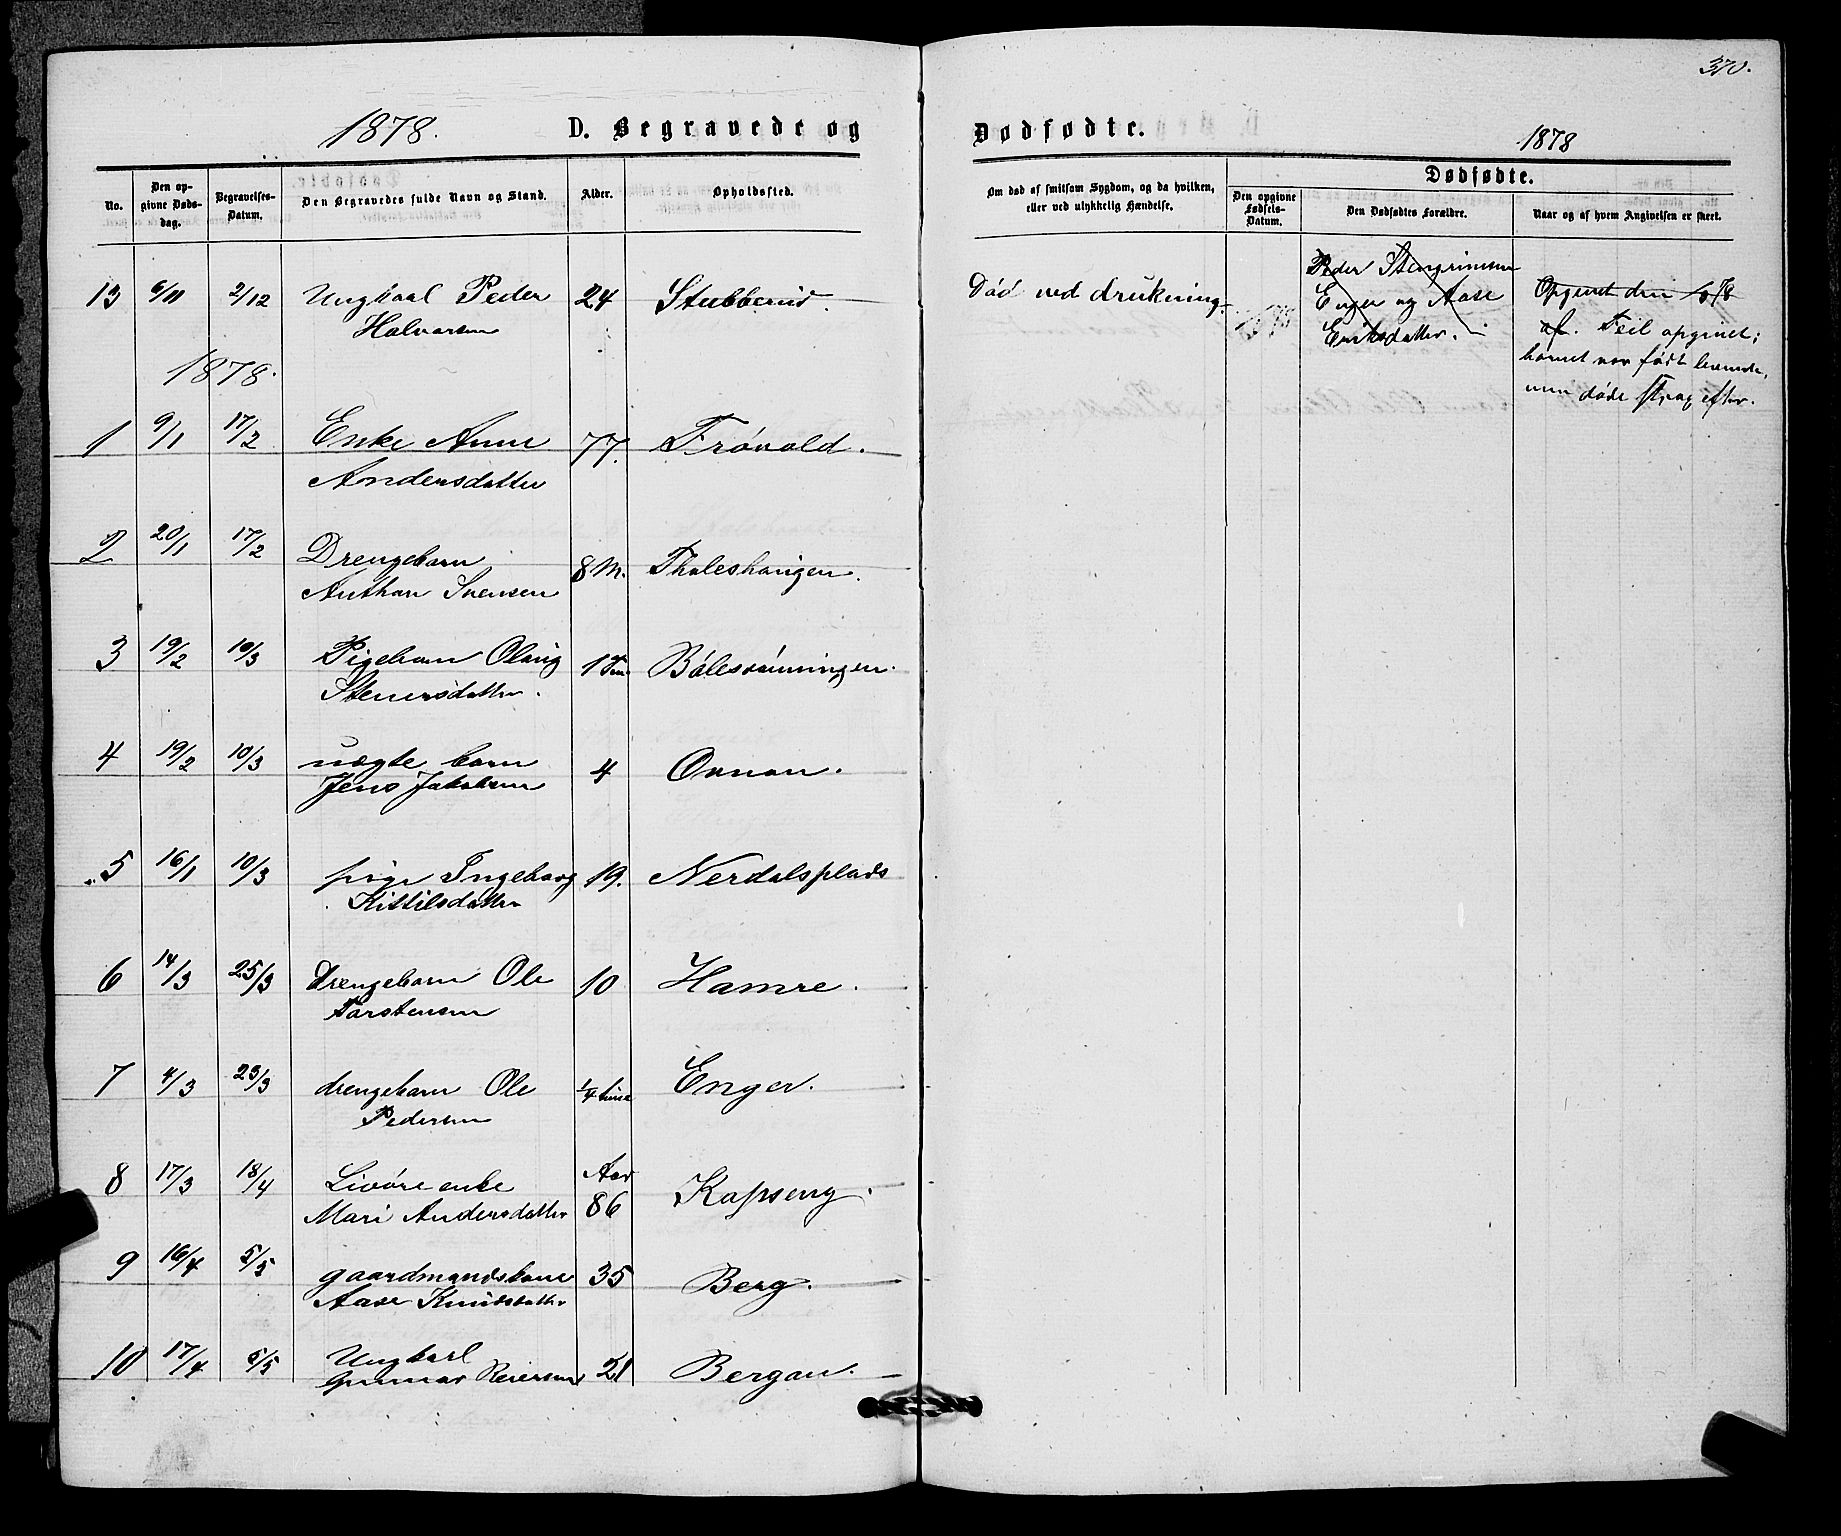 370.
1878. D. Begravede og Dødfødte. 1878
No. Den opgivne Dødsdag. Begravelses-Datum. Den Begravedes fulde Navn og Stand. Alder. Opholdssted.
Om død af smitsom Sygdom, og da hvilken, eller ved ulykkelig Hændelse.
Dødfødte.
Den opgivne Fødsels-Datum. Den Dødfødtes Forældre. Naar og af hvem Angivelsen er skeet.
13 6/11 2/12 Ungkarl Peder 24 Stubberud. Død ved drukning.
Halvorsen
Peder Stengrimsen
Enger og Aase
Eriksdatter.
Opgivet den
af. Feil opgivet;
barnet var født levende,
men døde strax efter.
1878.
1 9/1 17/2 Enke Anne 77. Frövold.
Andersdatter
2 20/1 17/2 Drengebarn 8 M. Thaleshaugen.
Anthon Svensen
3 19/2 10/3 Pigebarn Olaug 1 Bålesrönningen.
Stenersdatter.
4 19/2 10/3 uægte barn 4
Jens Jakobsen
5 16/1 10/3 pige Ingeborg 19. Nerdalsplads
Kittilsdatter
6 14/3 25/3 drengebarn Ole 10 Hamre.
Torstensen
7 4/3 23/3 drengebarn Ole 1/4 time Enger.
Pedersen
8 17/3 18/4 Livöre enke Aar Kapseng.
Mari Andersdatter 86
9 16/4 5/5 gaardmandskone 35 Berg.
Aase Knudsdatter
10 17/4 5/5 Ungkarl 21 Bergan.
Gunnar Reiersen